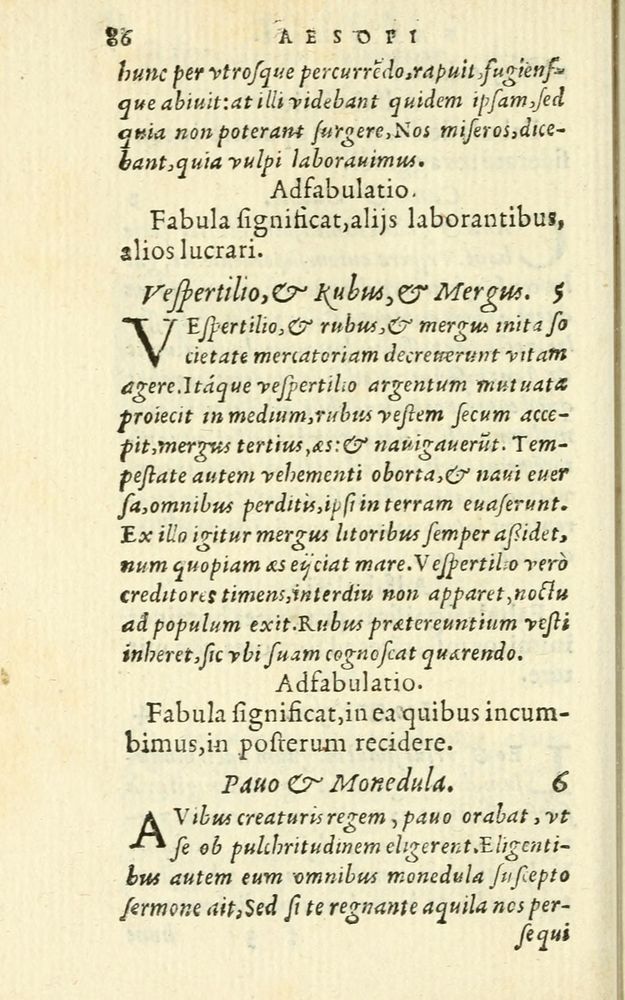 86 AESOPI
hunc per vtroſque percurrẽdo,rapuit,fugienſ-
que abiuit:at illi videbant quidem ipſam,ſed
quia non poterant ſurgere,Nos miſeros,dice-
bant,quia vulpi laborauimus.
Adfabulatio.
Fabula ſignificat,alijs laborantibus,
alios lucrari.
Veſpertilio,& Rubus,& Mergus. 5
VEſpertilio,& rubus,& mergus inita ſo
cietate mercatoriam decreuerunt vitam
agere.Itáque veſpertilio argentum mutuatæ
proiecit in medium,rubus veſtem ſecum acce-
pit,mergus tertius,æs:& nauigauerũt. Tem-
peſtate autem vehementi oborta,& naui euer
ſa,omnibus perditis,ipſi in terram euaſerunt.
Ex illo igitur mergus litoribus ſemper aſsidet,
num quopiam æs eijciat mare.Veſpertilio verò
creditores timens,interdiu non apparet,noctu
ad populum exit.Rubus prætereuntium veſti
inheret,ſic vbi ſuam cognoſcat quærendo.
Adfabulatio.
Fabula ſignificat,in ea quibus incum-
bimus,in poſterum recidere.
Pauo & Monedula. 6
AVibus creaturis regem, pauo orabat, vt
ſe ob pulchritudinem eligerent.Eligenti-
bus autem eum omnibus monedula ſuſcepto
ſermone ait,Sed ſi te regnante aquila nos per-
ſequi